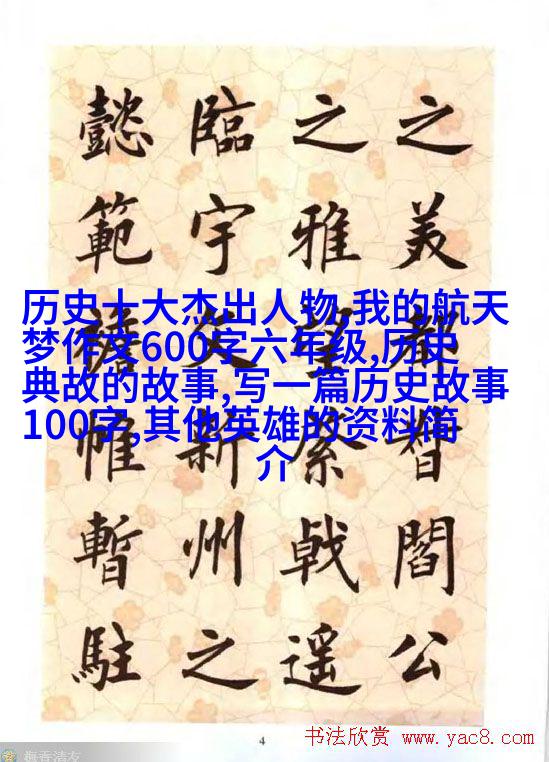 历史十大杰出人物,我的航天
梦作文600字六年级,历史
典故的故事,写一篇历史故事
100字,其他英雄的资料简
介
之美都督閻公
之雅望棨戟遥
臨宇文新州之
懿範襜帷暫駐
4
书法欣赏 www.yac8.com
梅香清友